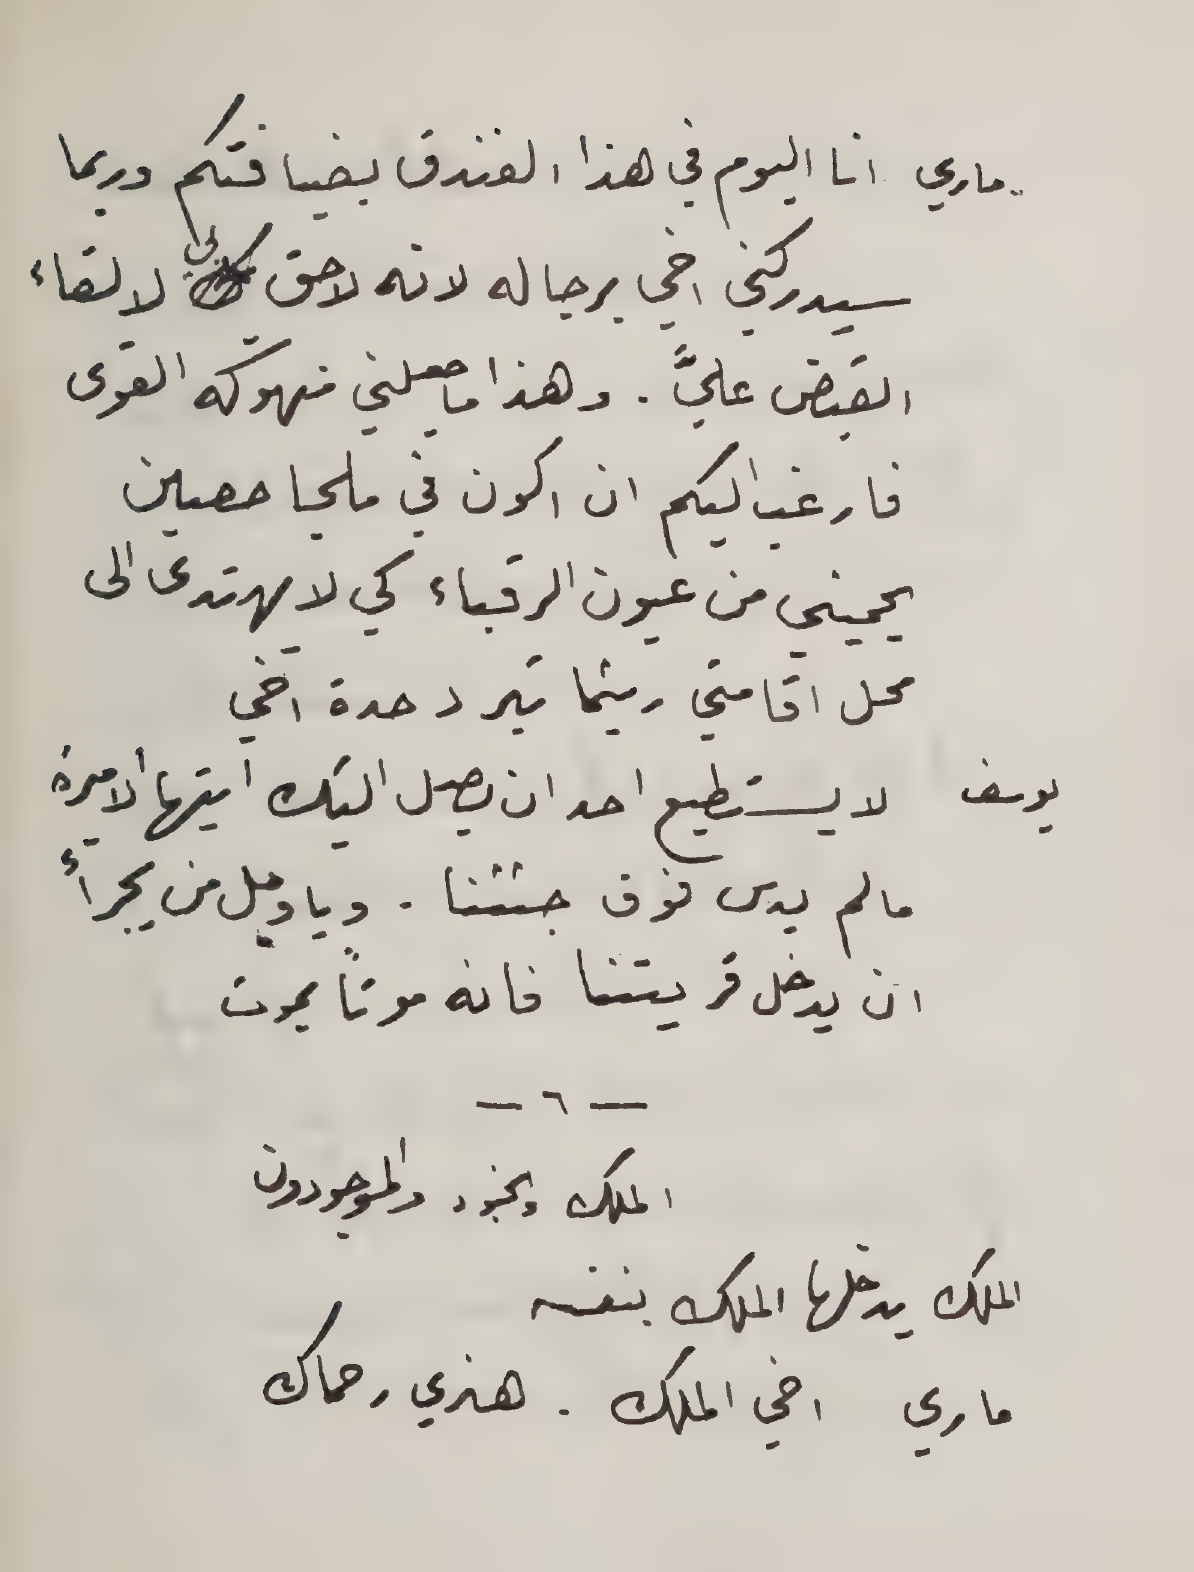 ماري انا اليوم في هذا الفندق بضيافتكم وربما
سيدركني اخي برجاله لانه لاحق بي لالقاء
القبض عليَّ . وهذا ماجعلني منهوكه القوى
فارغب اليكم ان اكون في ملجا حصين
يحميني من عيون الرقباء كي لا يهتدى الى
محل اقامتي ريثما تبرد حدة اخي
يوسف لا يستطيع احد ان يصل اليك ايتها الاميرة
مالم يدس فوق جثثنا . وياويل من يجرأ
ان يدخل قريتنا فانه موتاً يموت
— ٦ —
الملك وجنود والموجودون
الملك يدخلها الملك بنفسه
ماري اخي الملك . هنري رحماك